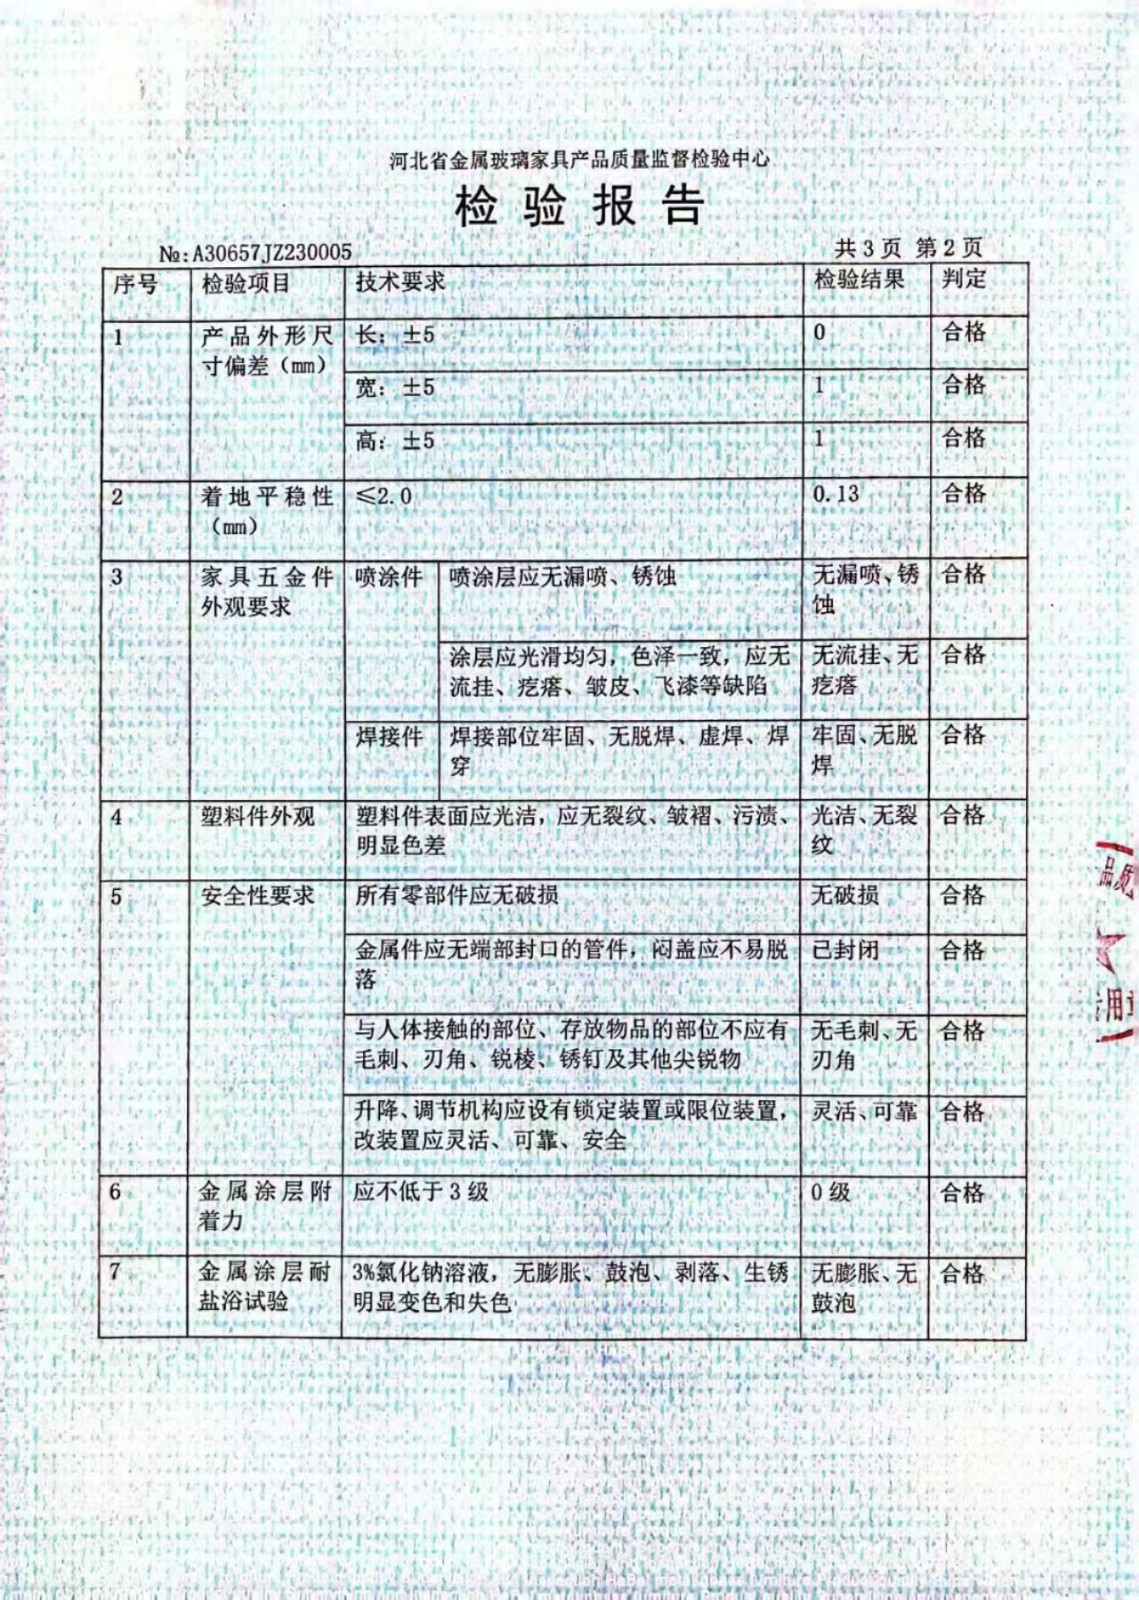 河北省金属玻璃家具产品质量监督检验中心
检验报告
№:A30657JZ230005
共3页 第2页
序号 检验项目 技术要求 检验结果 判定
1 产品外形尺寸偏差（mm） 长：±5 0 合格
宽：±5 1 合格
高：±5 1 合格
2 着地平稳性（mm） ≤2.0 0.13 合格
3 家具五金件外观要求 喷涂件 喷涂层应无漏喷、锈蚀 无漏喷、锈蚀 合格
涂层应光滑均匀，色泽一致，应无流挂、疙瘩、皱皮、飞漆等缺陷 无流挂、无疙瘩 合格
焊接件 焊接部位牢固、无脱焊、虚焊、焊穿 牢固、无脱焊 合格
4 塑料件外观 塑料件表面应光洁，应无裂纹、皱褶、污渍、明显色差 光洁、无裂纹 合格
5 安全性要求 所有零部件应无破损 无破损 合格
金属件应无端部封口的管件，闷盖应不易脱落 已封闭 合格
与人体接触的部位、存放物品的部位不应有毛刺、刃角、锐棱、锈钉及其他尖锐物 无毛刺、无刃角 合格
升降、调节机构应设有锁定装置或限位装置，改装置应灵活、可靠、安全 灵活、可靠 合格
6 金属涂层附着力 应不低于3级 0级 合格
7 金属涂层耐盐浴试验 3%氯化钠溶液，无膨胀、鼓泡、剥落、生锈明显变色和失色 无膨胀、无鼓泡 合格
品质
用